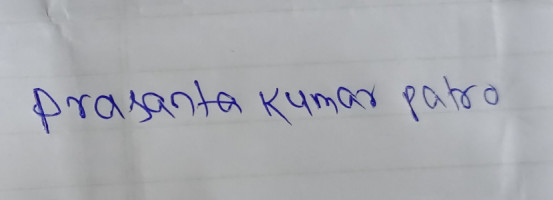 Prasanta Kumar patro